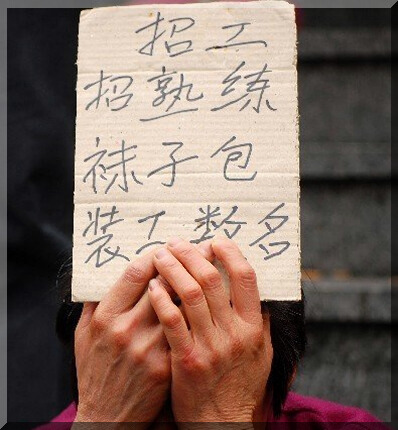 招工
招熟练
袜子包
装工数名